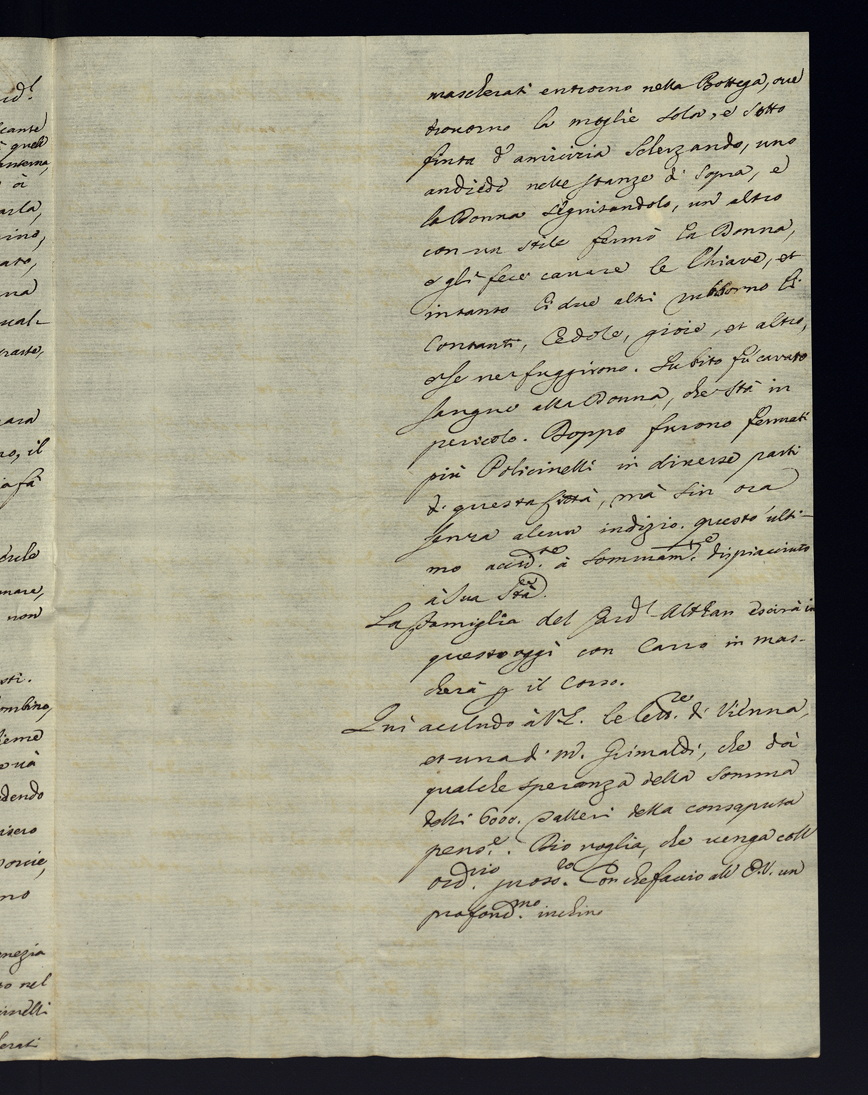 mascherati entrorno nella Bottega, ove
trovorno la moglie sola, e sotto
finta d'amicizia scherzando, uno
andiede nelle stanze di sopra, e
la Donna seguitandolo, un altro
con un stile fermò la Donna,
e gli fece cavare le Chiave, et
intanto li due altri li
Contanti, Cedole, gioie, et altro,
e se ne fuggirono. Subito fù cavato
sangue alla Donna, che stà in
pericolo. Doppo furono fermati
più Policinelli in diverse parti
di questa Città, mà sin ora
senza alcun indizio. questo ulti-
mo accid.te à sommam.te dispiacciuto
à Sua Stà.
La famiglia del Card.l Althan escirà in
quest'oggi con Carro in mas-
cherà p il Corso.
Qui accludo à V.E. le lett.re di Vienna,
et una di M. Grimaldi, che dà
qualche speranza della somma
delli 6000. talleri della consaputa
pens.e. Dio voglia, che venga coll'
ord.rio pross.o. Con che faccio all' E.V. un
profond.mo inchino
ino,
ato,
il
non
mbino,
dendo
no
enezia
to nel
cinelli
cherati